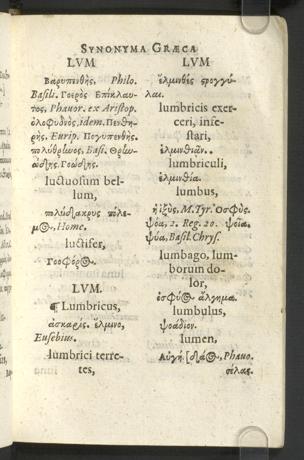 SYNONYMA GRÆCA
LVM
Βαρυπενθής. Philo.
Basili. Γοερὸς Ἐπίκλαυ-
τος, Phavor. ex Aristop.
ὀλοφυδνὸς, idem. Πενθη-
ρής. Eurip. Πογυπενθής.
πολύθρηνος, Basi. Θρηνώ-
ώδης. Γοώδης.
luctuosum bel-
lum,
πολύδακρυς πόλε-
μος, Home.
luctifer,
Γοοφόρος.
LVM.
¶ Lumbricus,
ἀσκαρίς. ἕλμινο,
Eusebius.
lumbrici terre-
tes,
LVM
ἕλμινθες στρογγύ-
λαι.
lumbricis exer-
ceri, infe-
stari,
ἑλμινθιᾶν.
lumbriculi,
ἑλμινθία.
lumbus,
ἡ ἰξύς, M. Tyr. Ὀσφύς.
ψόα, 2. Reg. 20. ψοία,
ψύα, Basil. Chrys.
lumbago, lum-
borum do-
lor,
ὀσφύος ἄλγημα.
lumbulus,
ψοάδιον.
lumen,
Αὐγή. Phavo.
σέλας.